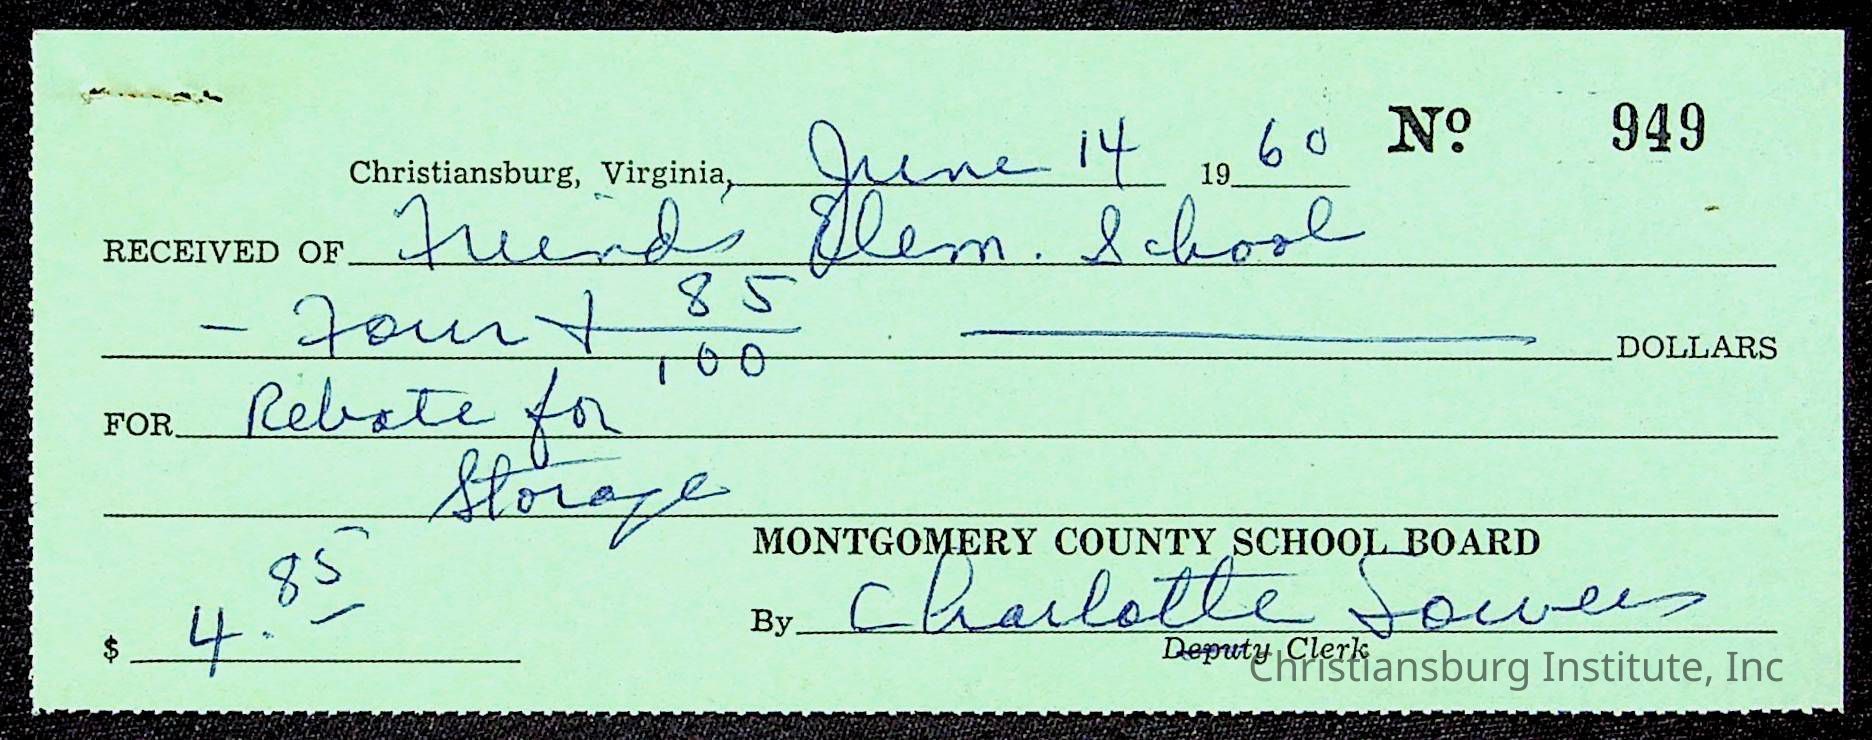 Nº 949
Christiansburg, Virginia, June 14 1960
RECEIVED OF Friends Elem. School
- Four + 85/100 DOLLARS
FOR Rebate for
Storage
MONTGOMERY COUNTY SCHOOL BOARD
$ 4.85
By Charlotte Sowers
Deputy Clerk
Christiansburg Institute, Inc